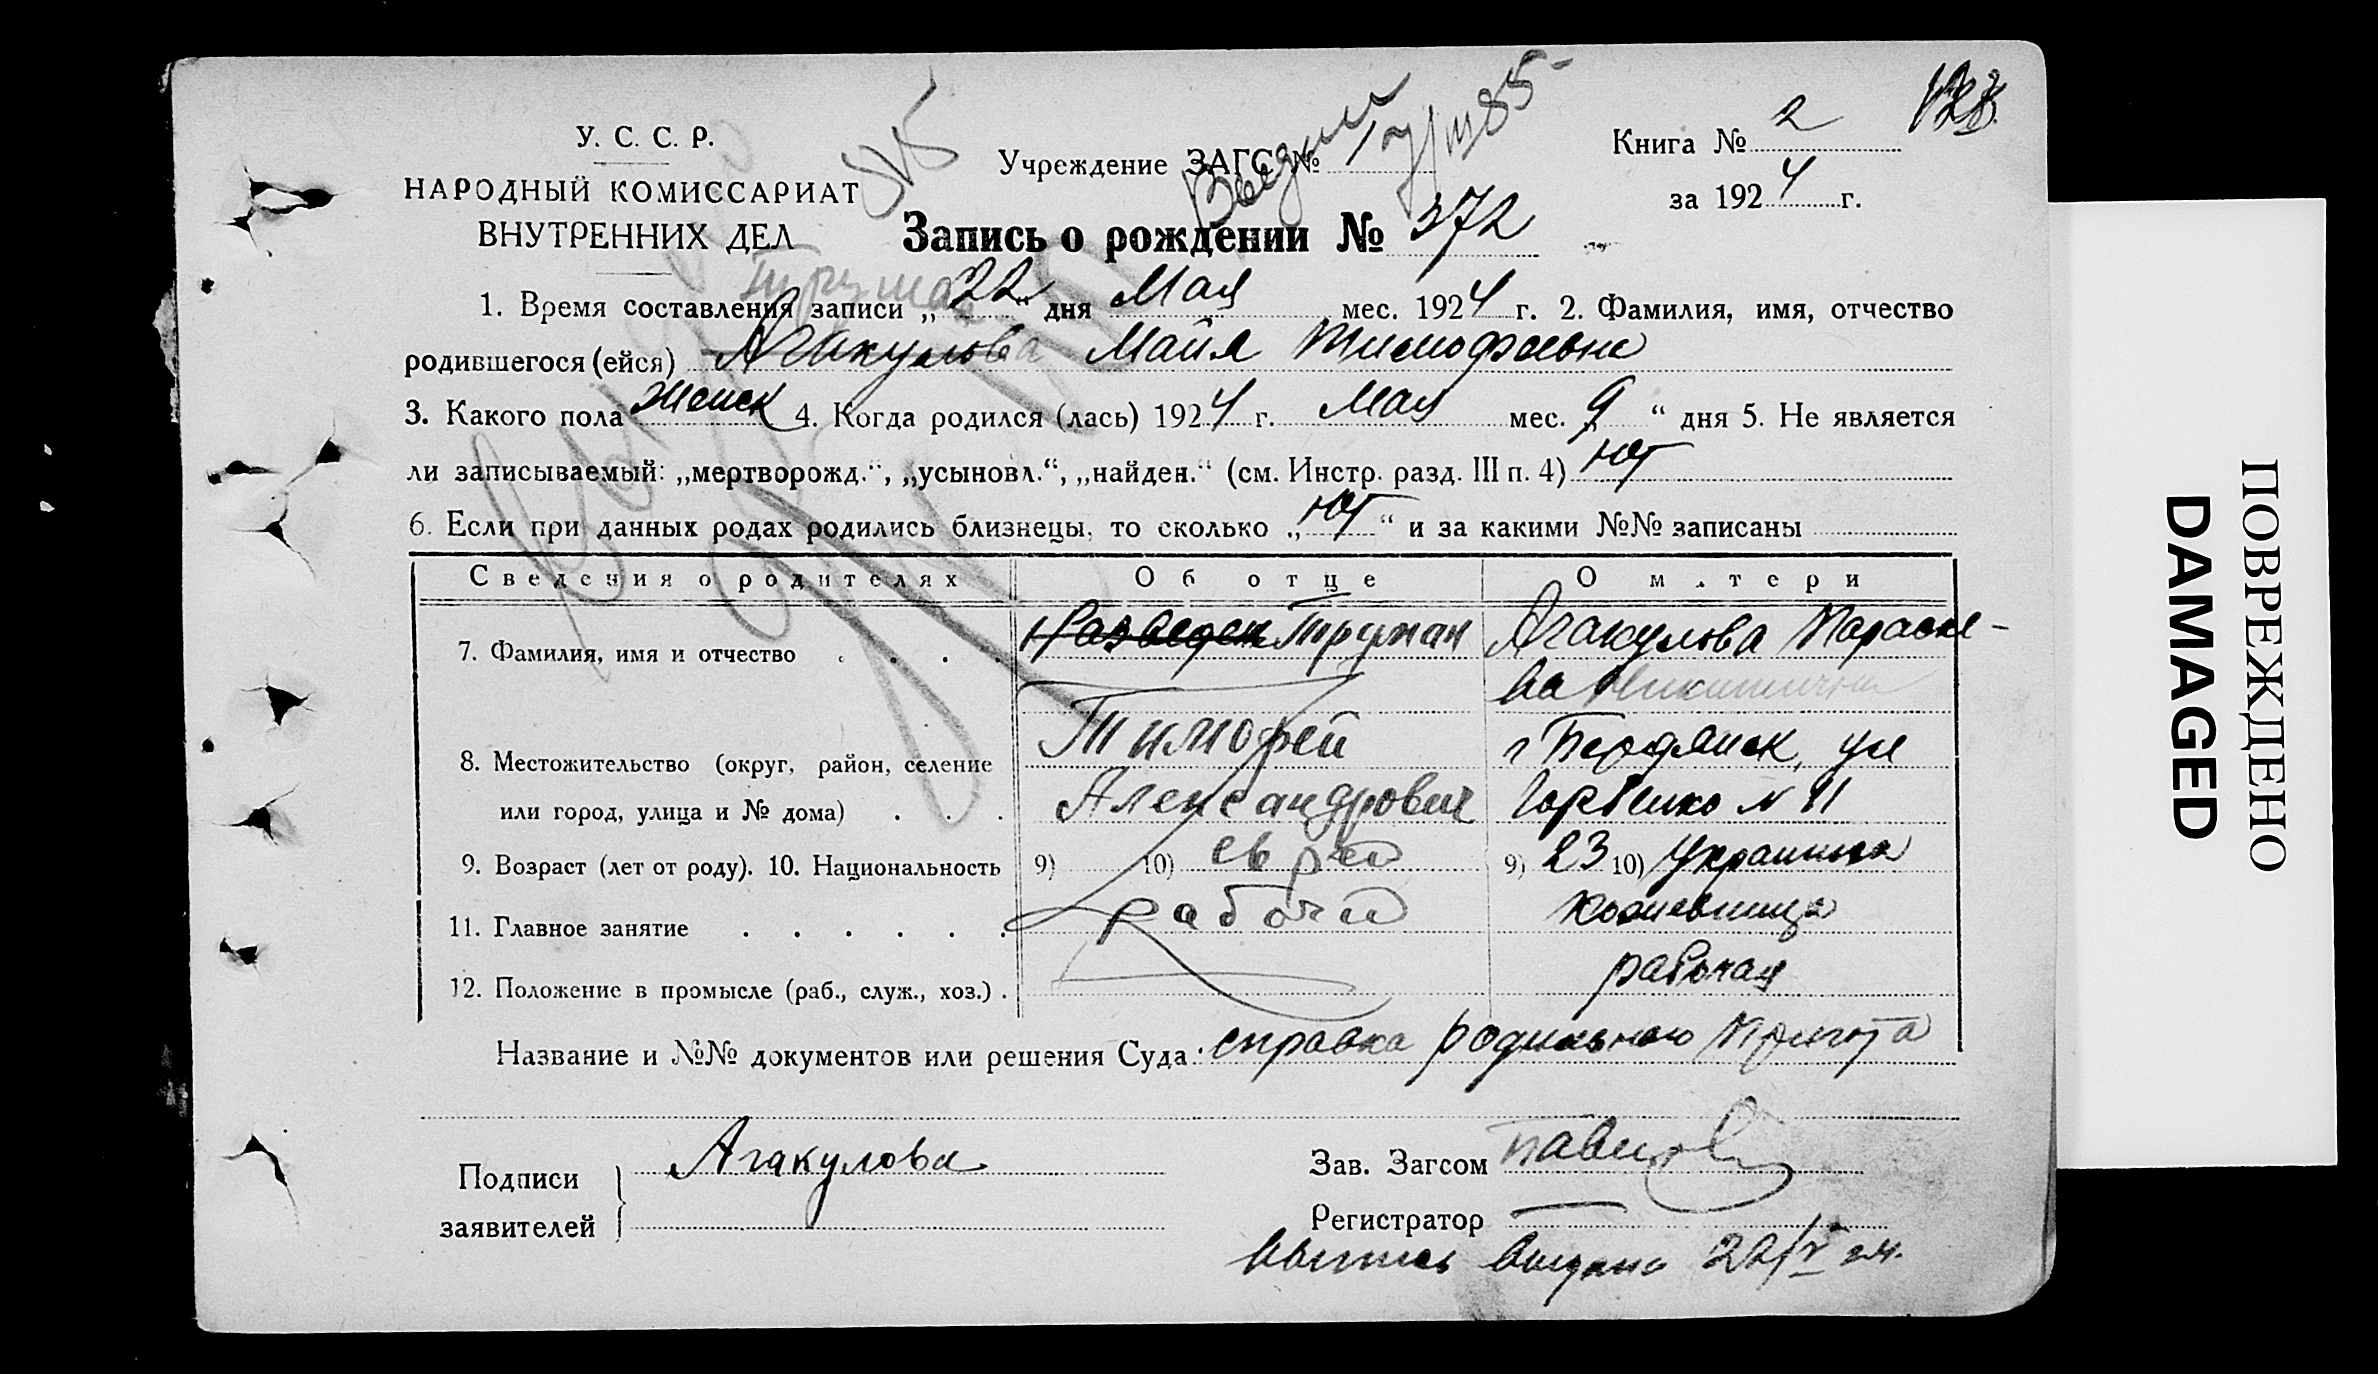 У. С. С. Р.
НАРОДНЫЙ КОМИССАРИАТ
ВНУТРЕННИХ ДЕЛ
Учреждение ЗАГС №
Книга № 2
за 1924 г.
Запись о рождении № 372
1. Время составления записи „22“ дня Мая мес. 1924 г. 2. Фамилия, имя, отчество
родившегося (ейся) Агакулова Майя Тимофеевна
3. Какого пола женск 4. Когда родился (лась) 1924 г. Мая мес. „9“ дня 5. Не является
ли записываемый: „мертворожд.“, „усыновл.“, „найден.“ (см. Инстр. разд. III п. 4) нет
6. Если при данных родах родились близнецы, то сколько „нет“ и за какими №№ записаны
Сведения о родителях Об отце О матери
7. Фамилия, имя и отчество Разведен Трушан Агакулова Параске-
ва Никитична
Тимофей
8. Местожительство (округ, район, селение г Бердянск, ул
или город, улица и № дома) Александрович Горбенко N 91
9. Возраст (лет от роду). 10. Национальность 9) 10) еврей 9) 23 10) Украинка
11. Главное занятие рабочий
12. Положение в промысле (раб., служ., хоз.) рабочая
Название и №№ документов или решения Суда: справка родильного Приюта
Подписи заявителей Агакулова
Зав. Загсом
Регистратор
выпись выдана 22/V 24.
ПОВРЕЖДЕНО
DAMAGED